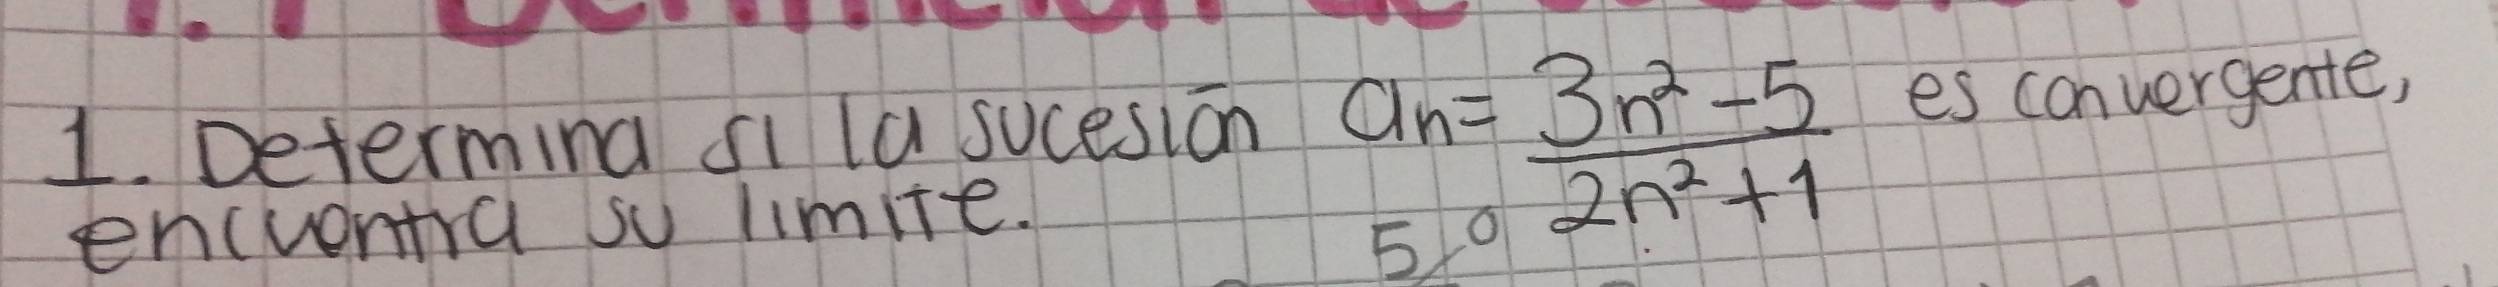 1. Determina si la sucesión an = 3n² - 5 / 2n² + 1 es convergente,
encuentra su limite.
5 0